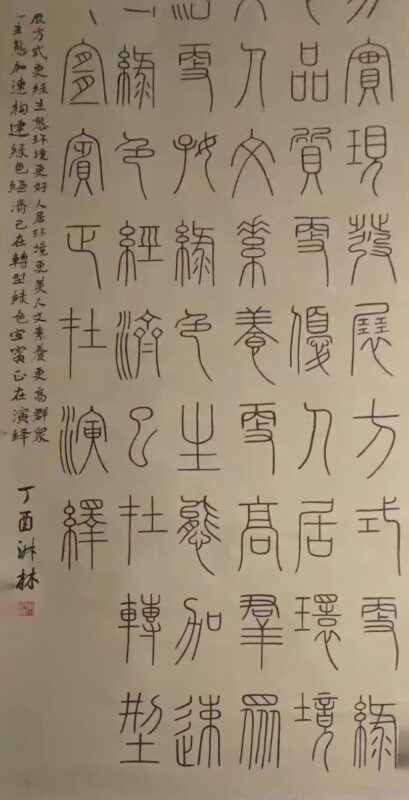 實現發展方式更綠
品質更優人居環境
人文素養更高羣眾
更好綠色生態加速
綠色經濟已在轉型
宜賓正在演繹
展方式更綠生態环境更好人居环境更美人文素養更高群衆
生態加速构建緑色經濟已在轉型緑色宜賓正在演繹
丁酉 林